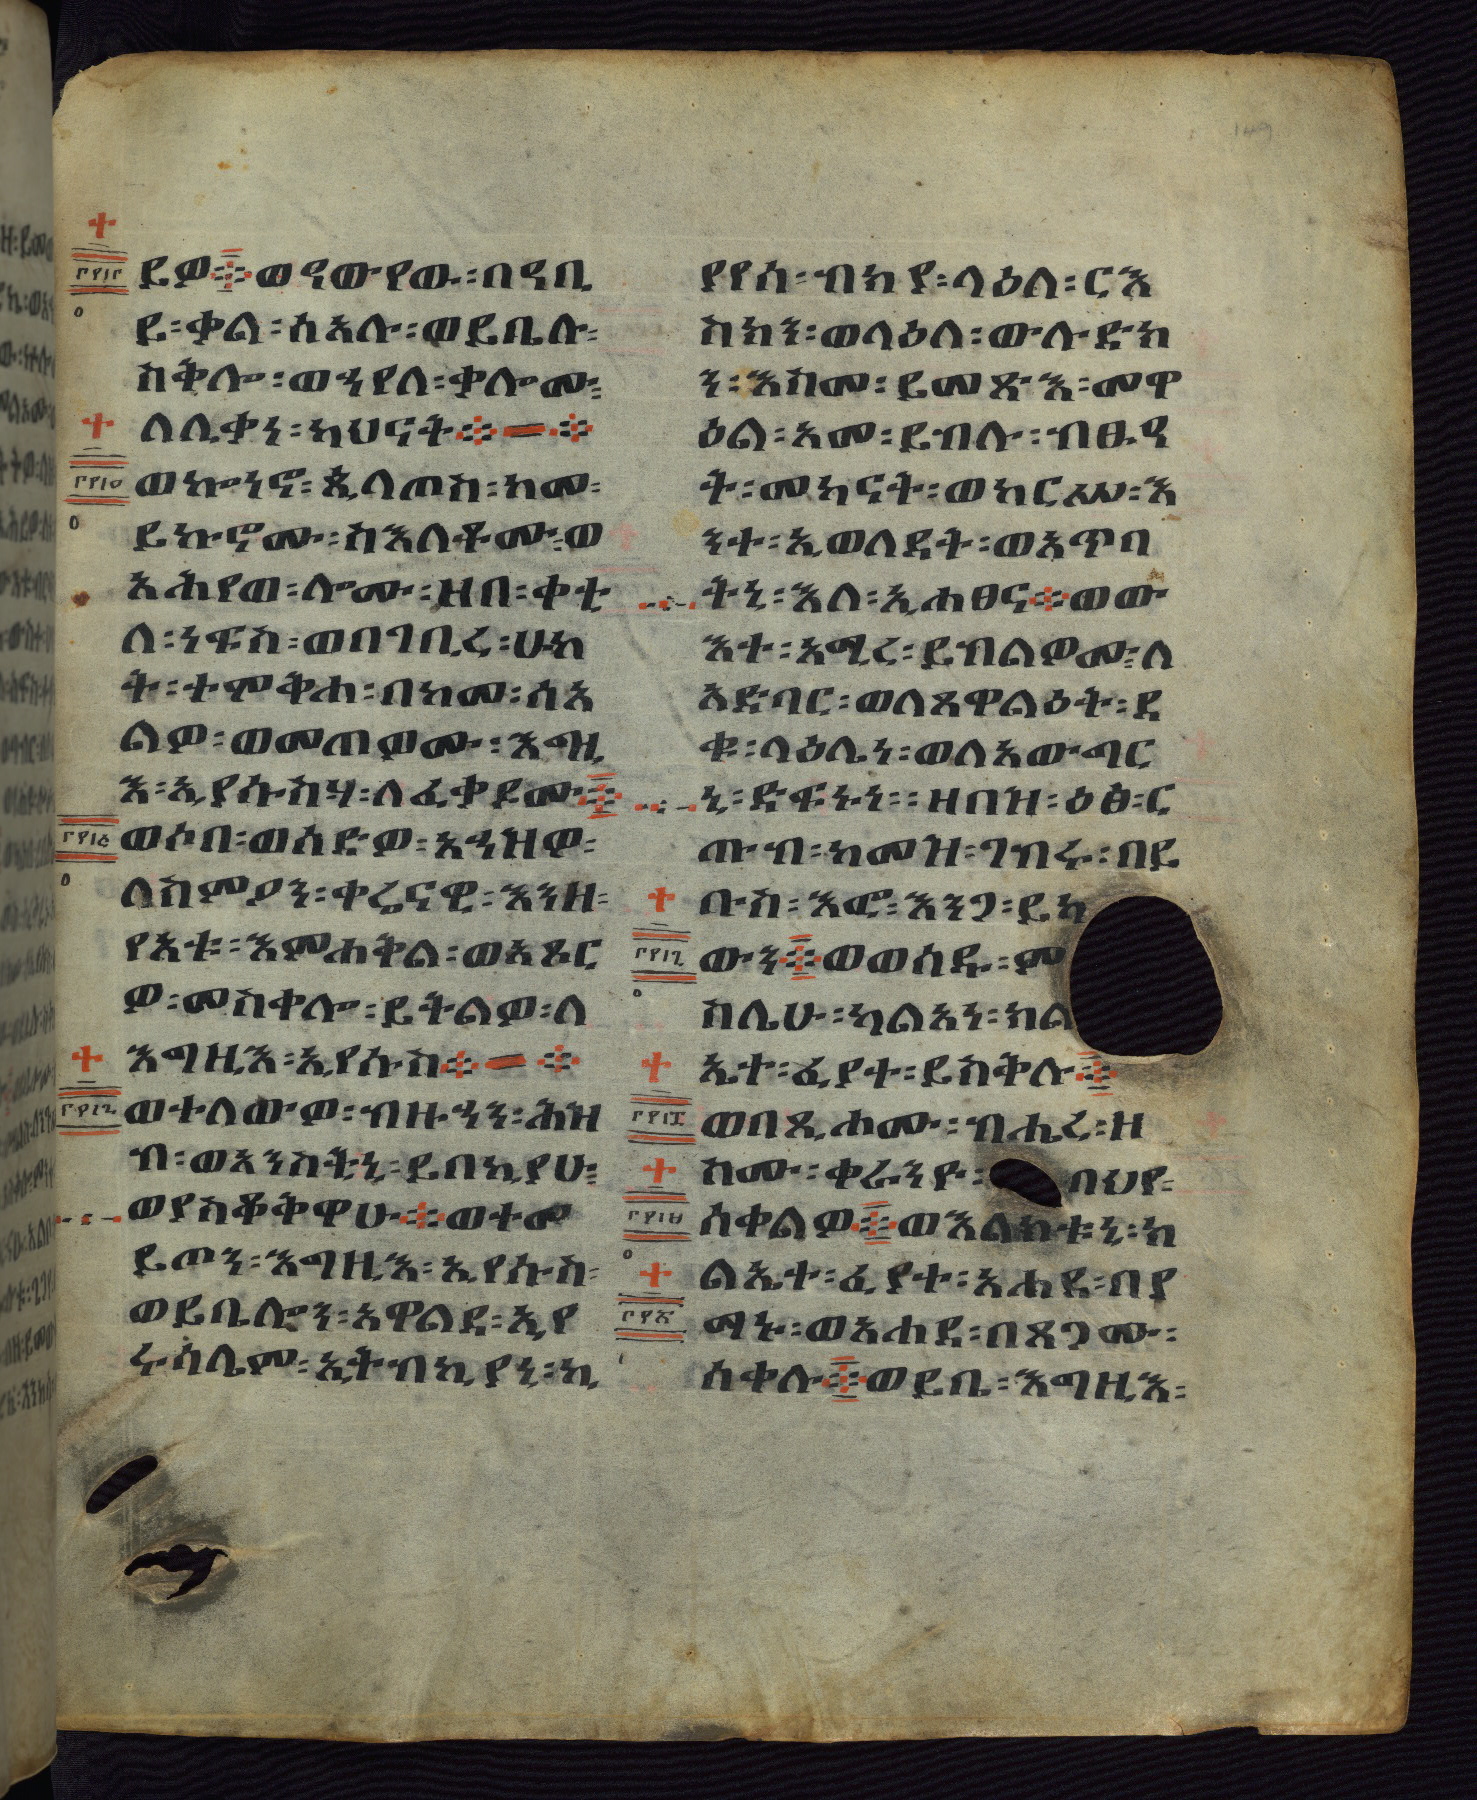 ፫፻፲፫
ይዎ ። ወዳውየው ፡ በዓቢ
ይ ፡ ቃል ፡ ሰአሉ ፡ ወይቤሉ ፡
ስቅሎ ፡ ወኀየለ ፡ ቃሎሙ ፡
ለሊቃነ ፡ ካህናት ።
፫፻፲፬
ወኰነኖ ፡ ጲላጦስ ፡ ከመ ፡
ይኩኖሙ ፡ ስእለቶሙ ፡ ወ
አሕየወ ፡ ሎሙ ፡ ዘበ ፡ ቀቲ
ለ ፡ ነፍስ ፡ ወበገቢረ ፡ ሀከ
ት ፡ ተሞቅሐ ፡ በከመ ፡ ሰአ
ልዎ ፡ ወመጠወሙ ፡ እግዚ
እ ፡ ኢየሱስሃ ፡ ለፈቃደሙ ።
፫፻፲፭
ወሶበ ፡ ወሰድዎ ፡ አኀዝዎ ፡
ለስምዖን ፡ ቀሬናዊ ፡ እንዘ ፡
የአቱ ፡ እምሐቅል ፡ ወአጾር
ዎ ፡ መስቀሎ ፡ ይትልዎ ፡ ለ
እግዚእ ፡ ኢየሱስ ።
፫፻፲፮
ወተለውዎ ፡ ብዙኀን ፡ ሕዝ
ብ ፡ ወአንስትኒ ፡ ይበኪያሁ ፡
ወያስቆቅዋሁ ። ወተመ
ይጦን ፡ እግዚእ ፡ ኢየሱስ ፡
ወይቤሎን ፡ አዋልደ ፡ ኢየ
ሩሳሌም ፡ ኢትብኪያኒ ፡ ኪ
ያየሰ ፡ ብክያ ፡ ላዕለ ፡ ርእ
ስክን ፡ ወላዕለ ፡ ውሉድክ
ን ፡ እስመ ፡ ይመጽእ ፡ መዋ
ዕል ፡ አመ ፡ ይብሉ ፡ ብፁዓ
ት ፡ መካናት ፡ ወከርሥ ፡ እ
ንተ ፡ ኢወለደት ፡ ወአጥባ
ትኒ ፡ እለ ፡ ኢሐፀና ። ወው
እተ ፡ አሚረ ፡ ይብልዎሙ ፡ ለ
አድባር ፡ ወለጸዋልዕት ፡ ደ
ቁ ፡ ላዕሌነ ፡ ወለአውጣር
ኒ ፡ ድፍኑነ ፡ ዘበዝ ፡ ዕፅ ፡ ር
ጡብ ፡ ከመዝ ፡ ገብሩ ፡ በይ
ቡስ ፡ እፎ ፡ እንጋ ፡ ይከ
፫፻፲፯
ውን ። ወወሰዱ ፡ ም
ስሌሁ ፡ ካልአነ ፡ ክል
ኤተ ፡ ፈያተ ፡ ይስቅሉ ።
ወበጺሐሙ ፡ ብሔረ ፡ ዘ
ስሙ ፡ ቀራንዮ ፡ በህየ ፡
ሰቀልዎ ። ወእልክቱኒ ፡ ክ
ልኤተ ፡ ፈያተ ፡ አሐደ ፡ በያ
ማኑ ፡ ወአሐደ ፡ በጸጋሙ ፡
ሰቀሉ ። ወይቤ ፡ እግዚእ ፡